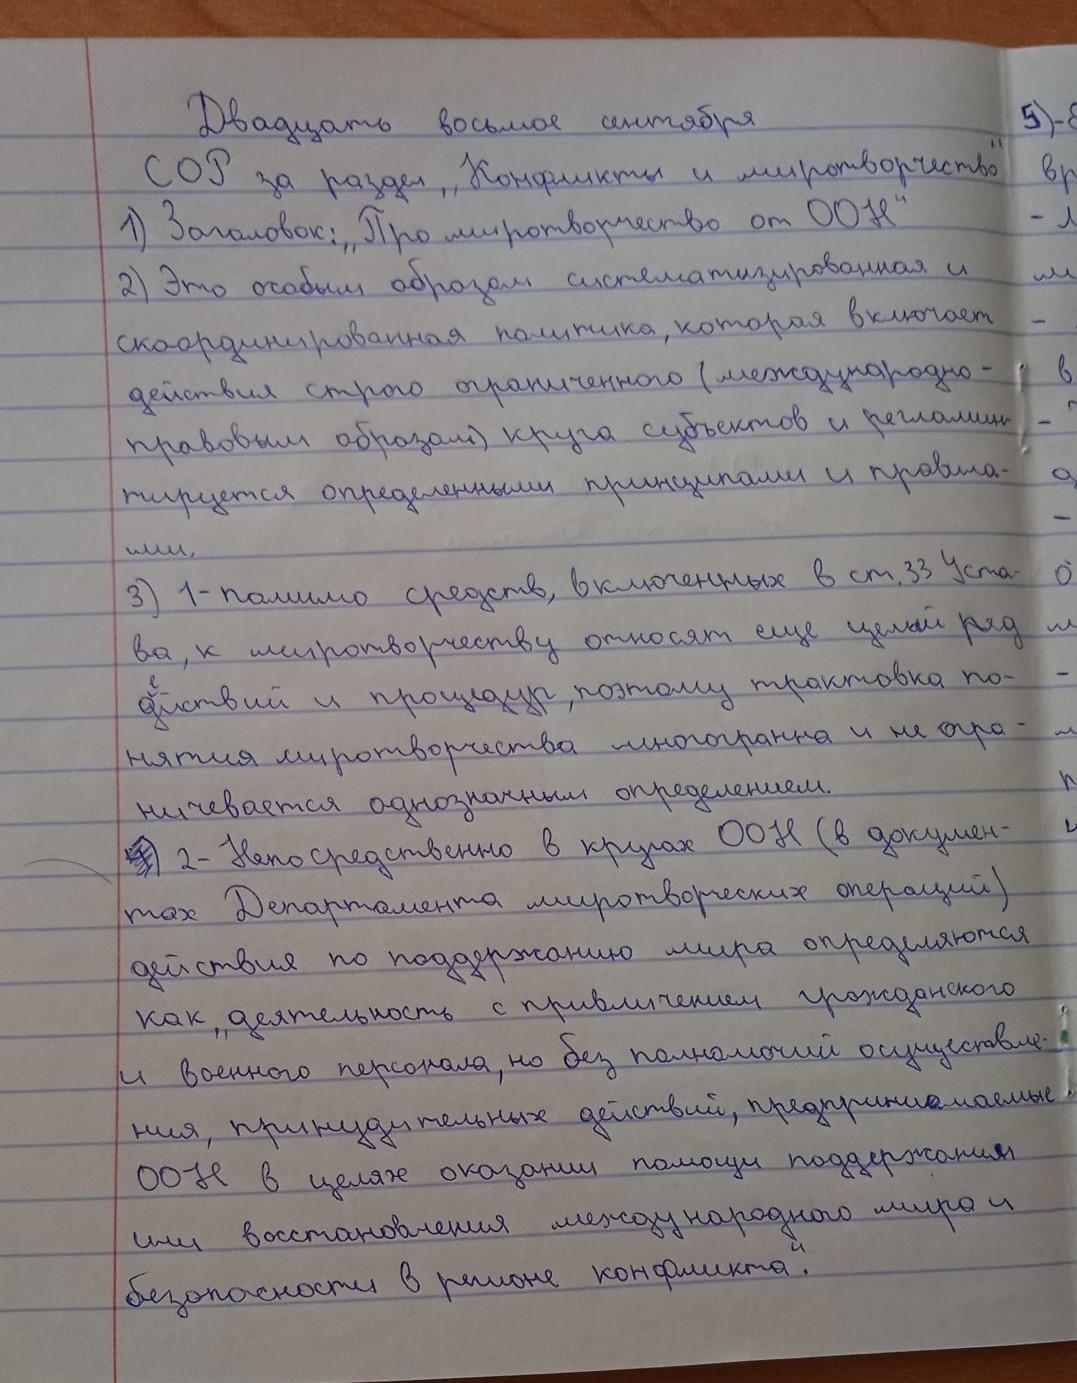 Двадцать восьмое сентября
СОР за раздел „Конфликты и миротворчество"
1) Заголовок: „Про миротворчество от ООН"
2) Это особым образом систематизированная и
скоординированная политика, которая включает
действия строго ограниченного (международно-
правовым образом) круга субъектов и регламин
тируется определенными принципами и правила-
ми.
3) 1-помимо средств, включенных в ст. 33 Уста-
ва, к миротворчеству относят еще целый ряд
действий и процедур, поэтому трактовка по-
нятия миротворчества многогранна и не огра-
ничевается однозначным определением.
2- Непосредственно в кругах ООН (в докумен-
тах Департамента миротворческих операций)
действия по поддержанию мира определяются
как „деятельность с привличением гражданского
и военного персонала, но без полномочий осуществле-
ния, принудительных действий, предпринимаемые
ООН в целях оказании помощи поддержания
или восстановления международного мира и
безопасности в регионе конфликта".
5)-
вр
-
-
в
-
-
-